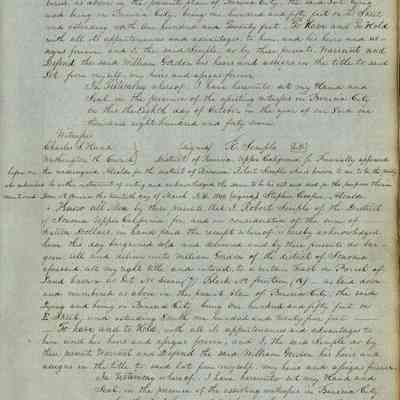 being as above in the parent plan of Benicia City, the said Lot lying
and being in Benicia City being one hundred and fifty feet on D Street
and extending North one hundred and twenty feet. To Have and To Hold
with all its appurtenances and advantages to him and his heirs and as-
signs forever and I the said Semple do by these presents Warrant and
Defend the said William Gordon his heirs and assigns in the title to said
Lot from myself, my heirs and assigns forever.
In Testimony whereof I have hereunto set my Hand and
Seal in the presence of the assisting witnesses in Benicia City
on this the Eighth day of October in the year of our Lord one
thousand eight hundred and forty seven.
Witnesses
Charles Signed R. Semple
Washington District of Sonoma Upper California Personally appeared
before me the undersigned Alcalde for the district of Sonoma Robert Semple who is known to me to be the party
who subscribed to the instrument of writing and acknowledged the same to be his act and deed for the purposes therein
mentioned. Done at Sonoma this day of March A.D. 1848 Signed Stephen Cooper, Alcalde
Know all Men by these presents that I Robert Semple of the District
of Sonoma Upper California for and in consideration of the sum of
Dollars in hand paid the receipt whereof is hereby acknowledged
have this day bargained sold and delivered and by these presents do bar-
gain sell and deliver unto William Gordon of the district of Sonoma
aforesaid all my right title and interest to a certain Tract or Parcel of
Land known as Lot No. Block No. fourteen as laid down
and numbered as above in the parent plan of Benicia City, the said
lying and being in Benicia City being one hundred and fifty feet on
E Street and extending South one hundred and twenty five feet
To have and to Hold with all its appurtenances and advantages to
him and his heirs and assigns forever, and I the said Semple do by
these presents Warrant and Defend the said William Gordon his heirs and
assigns in the title to said lot from myself, my heirs and assigns forever.
In Testimony whereof I have hereunto set my Hand and
Seal, in the presence of the assisting witnesses in Benicia City